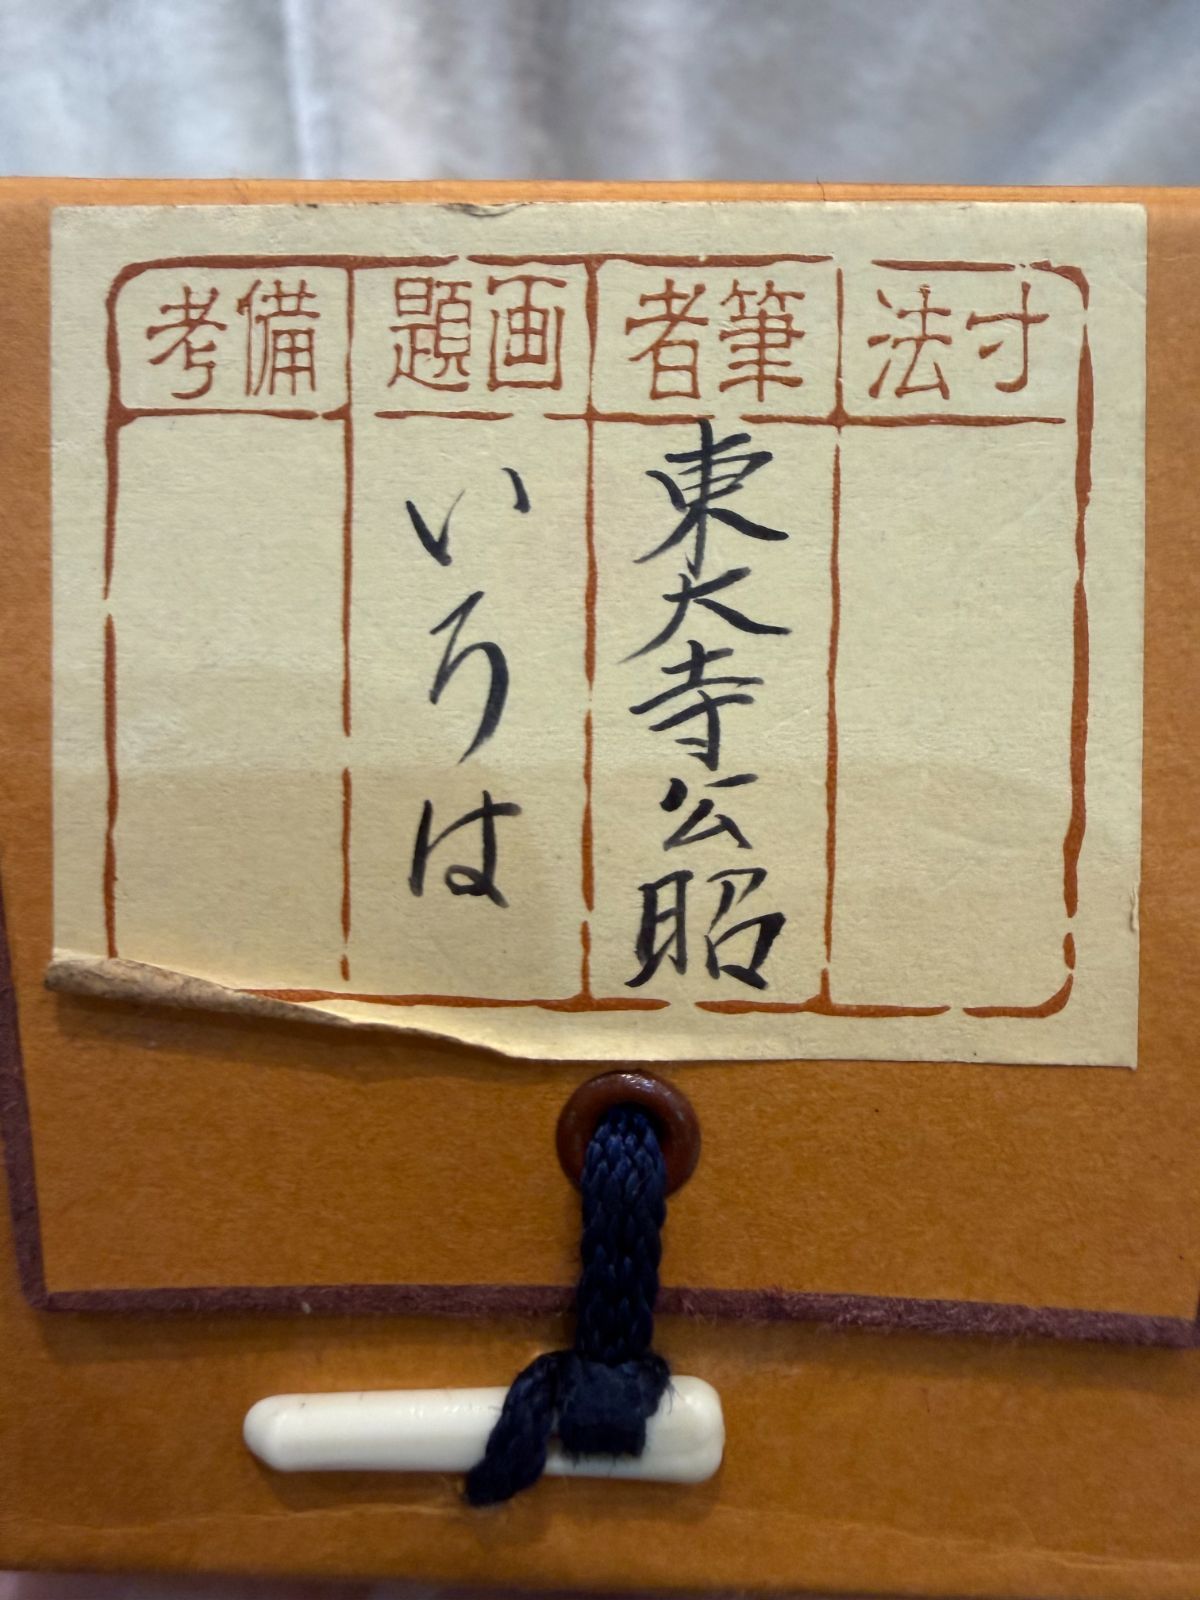 寸法
筆者
東大寺公昭
画題
いろは
備考